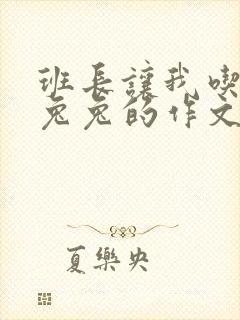 班长讓我喫
兔兔的作文
夏樂央